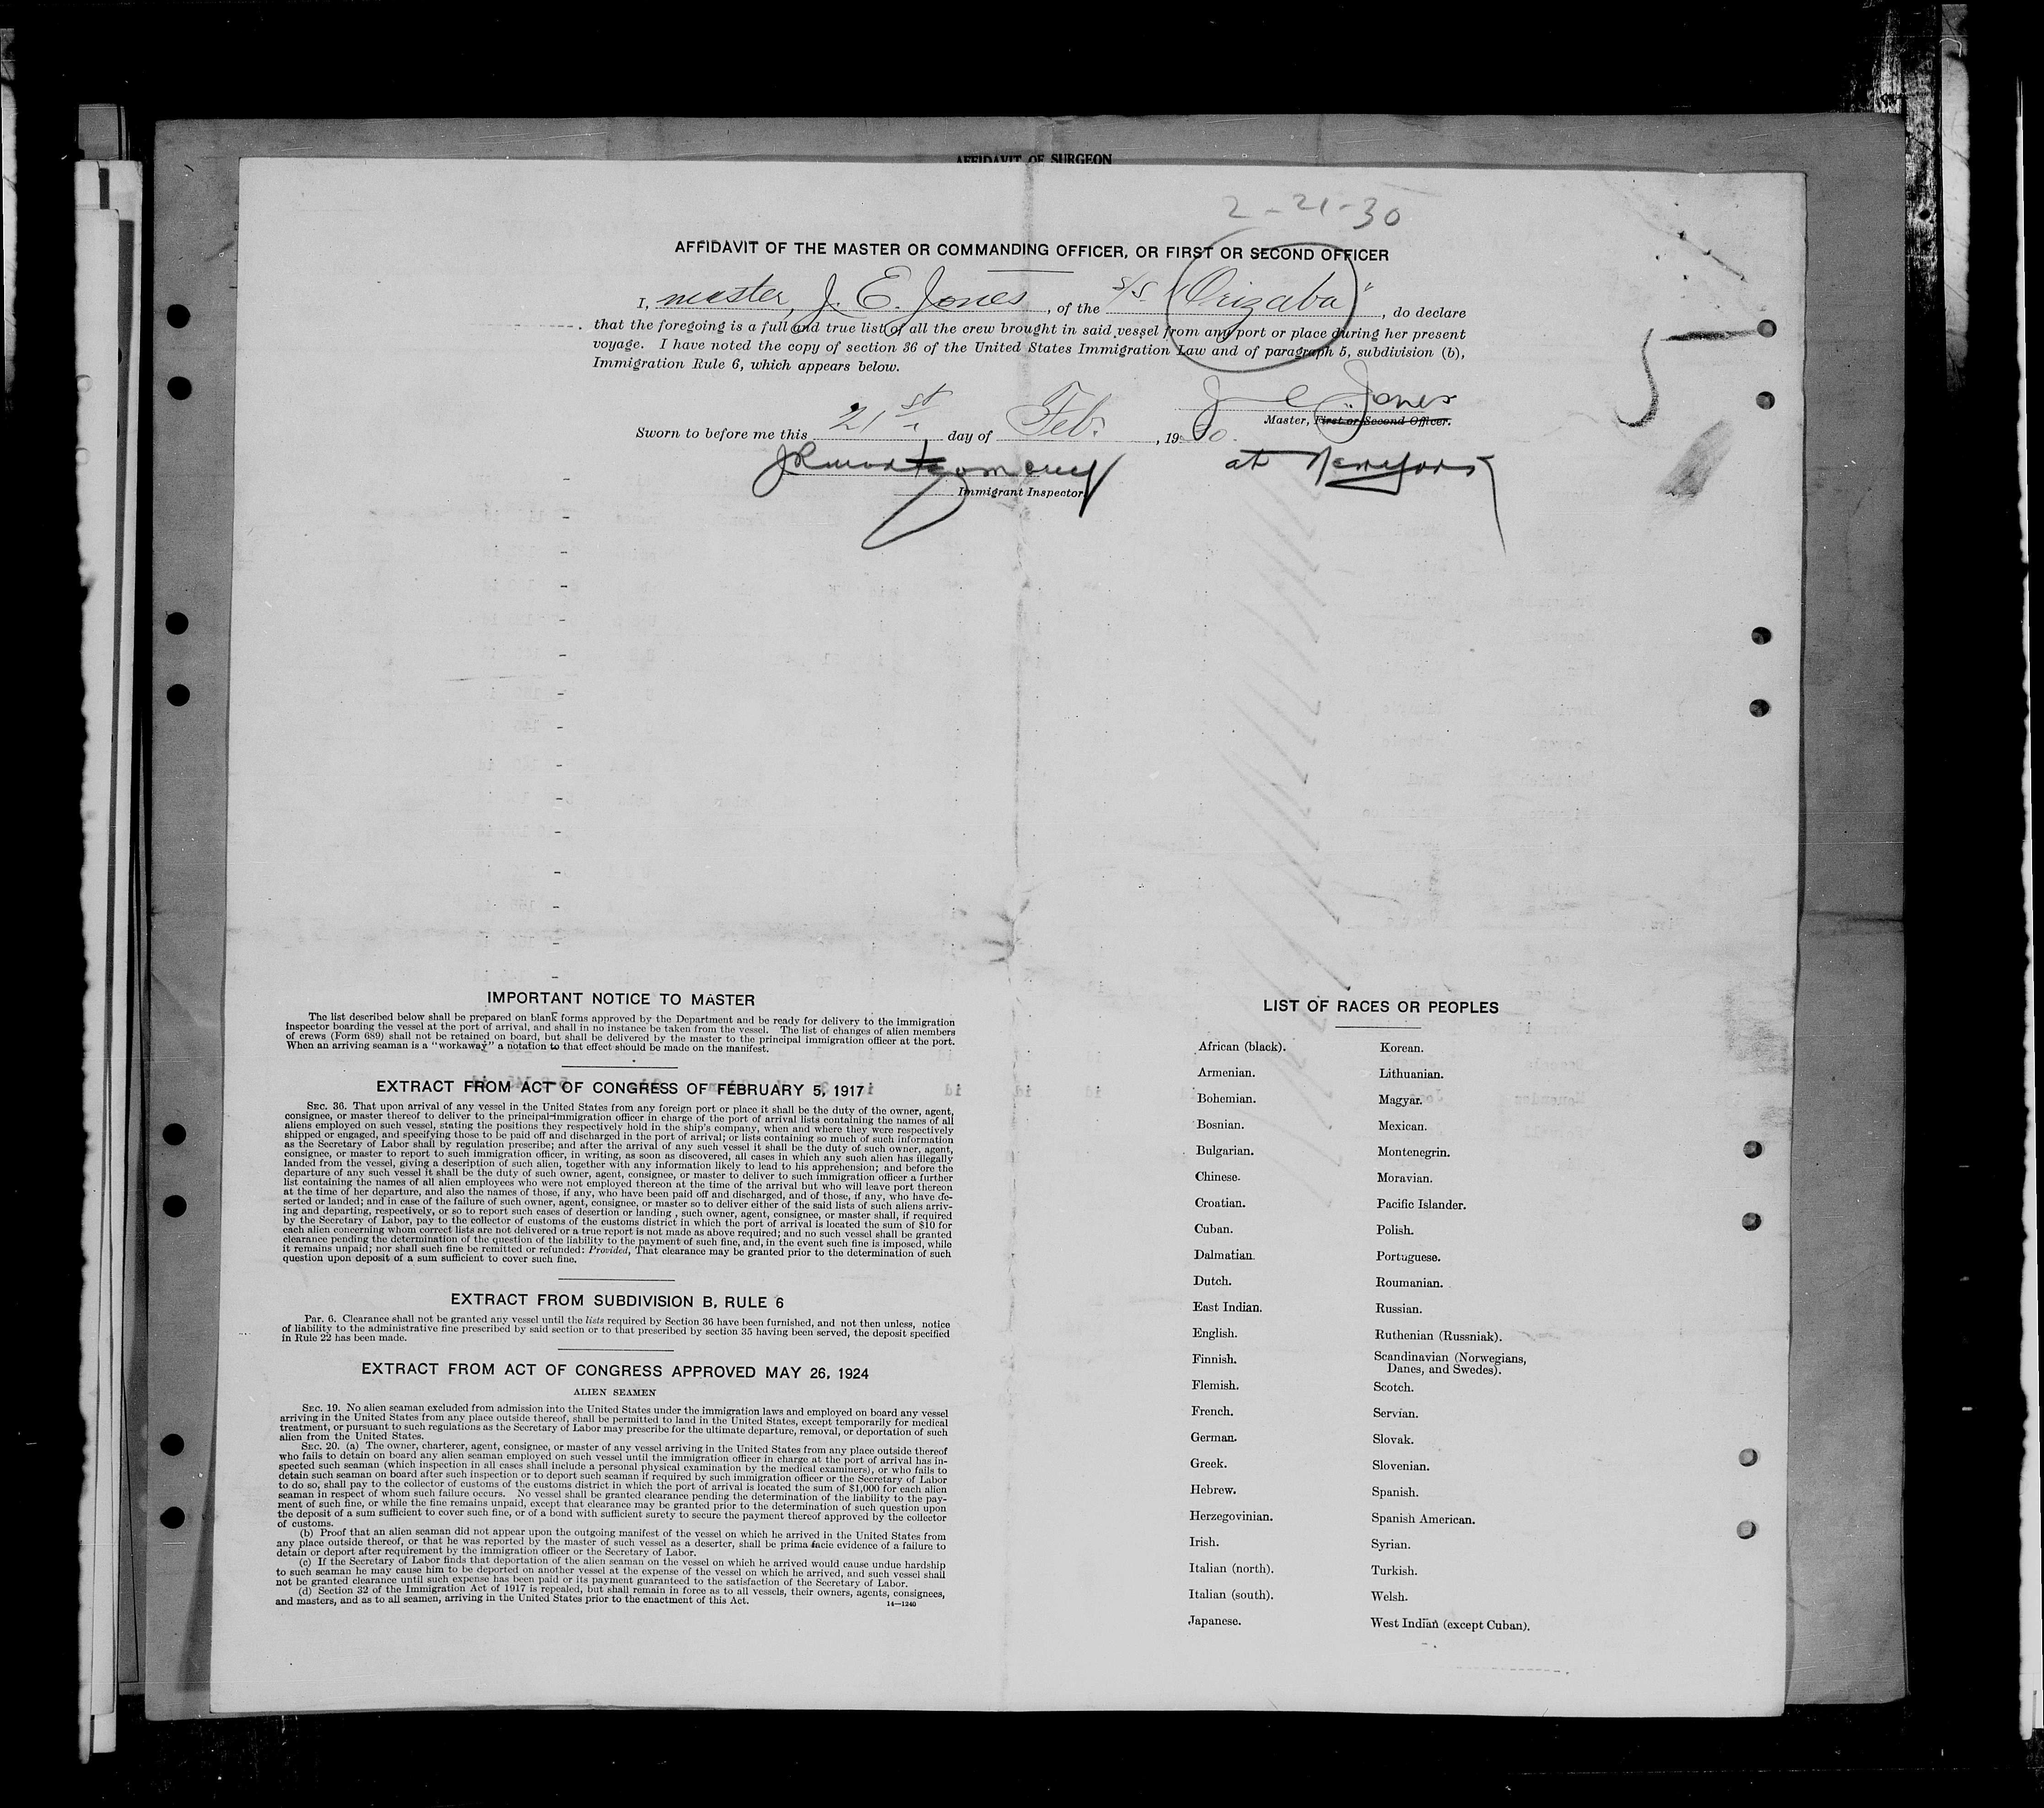 AFFIDAVIT OF SURGEON
2-21-30
AFFIDAVIT OF THE MASTER OR COMMANDING OFFICER, OR FIRST OR SECOND OFFICER
I, master, J. E. Jones, of the S/S. "Orizaba", do declare
that the foregoing is a full and true list of all the crew brought in said vessel from any port or place during her present
voyage. I have noted the copy of section 36 of the United States Immigration Law and of paragraph 5, subdivision (b),
Immigration Rule 6, which appears below.
5
J E Jones
Master, First or Second Officer.
Sworn to before me this 21st day of Feb., 1930.
at New York
Immigrant Inspector
IMPORTANT NOTICE TO MASTER
The list described below shall be prepared on blank forms approved by the Department and be ready for delivery to the immigration
inspector boarding the vessel at the port of arrival, and shall in no instance be taken from the vessel. The list of changes of alien members
of crews (Form 689) shall not be retained on board, but shall be delivered by the master to the principal immigration officer at the port.
When an arriving seaman is a "workaway" a notation to that effect should be made on the manifest.
EXTRACT FROM ACT OF CONGRESS OF FEBRUARY 5, 1917
SEC. 36. That upon arrival of any vessel in the United States from any foreign port or place it shall be the duty of the owner, agent,
consignee, or master thereof to deliver to the principal immigration officer in charge of the port of arrival lists containing the names of all
aliens employed on such vessel, stating the positions they respectively hold in the ship's company, when and where they were respectively
shipped or engaged, and specifying those to be paid off and discharged in the port of arrival; or lists containing so much of such information
as the Secretary of Labor shall by regulation prescribe; and after the arrival of any such vessel it shall be the duty of such owner, agent,
consignee, or master to report to such immigration officer, in writing, as soon as discovered, all cases in which any such alien has illegally
landed from the vessel, giving a description of such alien, together with any information likely to lead to his apprehension; and before the
departure of any such vessel it shall be the duty of such owner, agent, consignee, or master to deliver to such immigration officer a further
list containing the names of all alien employees who were not employed thereon at the time of the arrival but who will leave port thereon
at the time of her departure, and also the names of those, if any, who have been paid off and discharged, and of those, if any, who have de-
serted or landed; and in case of the failure of such owner, agent, consignee, or master so to deliver either of the said lists of such aliens arriv-
ing and departing, respectively, or so to report such cases of desertion or landing, such owner, agent, consignee, or master shall, if required
by the Secretary of Labor, pay to the collector of customs of the customs district in which the port of arrival is located the sum of $10 for
each alien concerning whom correct lists are not delivered or a true report is not made as above required; and no such vessel shall be granted
clearance pending the determination of the question of the liability to the payment of such fine, and, in the event such fine is imposed, while
it remains unpaid; nor shall such fine be remitted or refunded: Provided, That clearance may be granted prior to the determination of such
question upon deposit of a sum sufficient to cover such fine.
EXTRACT FROM SUBDIVISION B, RULE 6
PAR. 6. Clearance shall not be granted any vessel until the lists required by Section 36 have been furnished, and not then unless, notice
of liability to the administrative fine prescribed by said section or to that prescribed by section 35 having been served, the deposit specified
in Rule 22 has been made.
EXTRACT FROM ACT OF CONGRESS APPROVED MAY 26, 1924
ALIEN SEAMEN
SEC. 19. No alien seaman excluded from admission into the United States under the immigration laws and employed on board any vessel
arriving in the United States from any place outside thereof, shall be permitted to land in the United States, except temporarily for medical
treatment, or pursuant to such regulations as the Secretary of Labor may prescribe for the ultimate departure, removal, or deportation of such
alien from the United States.
SEC. 20. (a) The owner, charterer, agent, consignee, or master of any vessel arriving in the United States from any place outside thereof
who fails to detain on board any alien seaman employed on such vessel until the immigration officer in charge at the port of arrival has in-
spected such seaman (which inspection in all cases shall include a personal physical examination by the medical examiners), or who fails to
detain such seaman on board after such inspection or to deport such seaman if required by such immigration officer or the Secretary of Labor
to do so, shall pay to the collector of customs of the customs district in which the port of arrival is located the sum of $1,000 for each alien
seaman in respect of whom such failure occurs. No vessel shall be granted clearance pending the determination of the liability to the pay-
ment of such fine, or while the fine remains unpaid, except that clearance may be granted prior to the determination of such question upon
the deposit of a sum sufficient to cover such fine, or of a bond with sufficient surety to secure the payment thereof approved by the collector
of customs.
(b) Proof that an alien seaman did not appear upon the outgoing manifest of the vessel on which he arrived in the United States from
any place outside thereof, or that he was reported by the master of such vessel as a deserter, shall be prima facie evidence of a failure to
detain or deport after requirement by the immigration officer or the Secretary of Labor.
(c) If the Secretary of Labor finds that deportation of the alien seaman on the vessel on which he arrived would cause undue hardship
to such seaman he may cause him to be deported on another vessel at the expense of the vessel on which he arrived, and such vessel shall
not be granted clearance until such expense has been paid or its payment guaranteed to the satisfaction of the Secretary of Labor.
(d) Section 32 of the Immigration Act of 1917 is repealed, but shall remain in force as to all vessels, their owners, agents, consignees,
and masters, and as to all seamen, arriving in the United States prior to the enactment of this Act.
14—1240
LIST OF RACES OR PEOPLES
African (black).
Armenian.
Bohemian.
Bosnian.
Bulgarian.
Chinese.
Croatian.
Cuban.
Dalmatian.
Dutch.
East Indian.
English.
Finnish.
Flemish.
French.
German.
Greek.
Hebrew.
Herzegovinian.
Irish.
Italian (north).
Italian (south).
Japanese.
Korean.
Lithuanian.
Magyar.
Mexican.
Montenegrin.
Moravian.
Pacific Islander.
Polish.
Portuguese.
Roumanian.
Russian.
Ruthenian (Russniak).
Scandinavian (Norwegians,
Danes, and Swedes).
Scotch.
Servian.
Slovak.
Slovenian.
Spanish.
Spanish American.
Syrian.
Turkish.
Welsh.
West Indian (except Cuban).